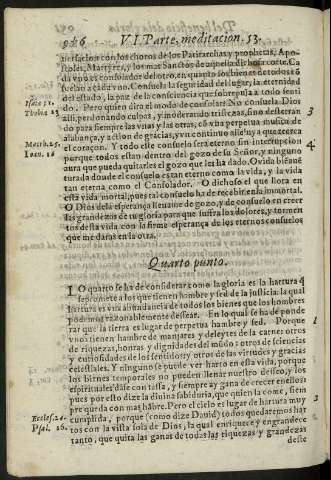 926 VI. Parte, meditacion, 53.
uersacion con los choros de los Patriarchas y prophetas, Apo-
stoles, Martyres, y los mas Sanctos de aquella dichosa corte. Ca
da vno es consolador del otro, en quanto los bienes de todos cõ
suelan a cada vno. Consuela la seguridad del lugar, la eternidad
del estado, la paz de la consciencia que sobrepuja a todo senti
do. Pero quien dira el modo de consolar? No consuela Dios
alli, perdonando culpas, y moderando tristezas, sino desterran
do para siempre las vnas y las otras, cõ vna perpetua musica de
alabança, y action de gracias, y vn continuo alleluya que recrea
el coraçon. Y todo este consuelo sera eterno sin interrupcion
porque todos estan dentro del gozo de su Señor, y ninguno
aura que pueda quitarles el gozo que les ha dado. O vida bienaué
turada donde el consuelo es tan eterno como la vida, y la vida
tan eterna como el Consolador. O dichoso el que llora en
esta vida mortal, pues tal consuelo ha de recebir en la immortal.
O Dios de la esperança llename de gozo, y de consuelo en creer
las grandezas de tu gloria para que suffra los dolores, y tormen
tos desta vida con la firme esperança de los eternos consuelos
que me daràs en la otra.
Isaie 51.
Thobiæ 13
Matth. 25.
Ioan. 16
3
4
Quarto punto.
LO quarto se ha de considerar como la gloria es la hartura q̃
se promete a los que tienen hambre y sed de la justicia: la qual
hartura es vna abundancia de todos los bienes que los hombres
pueden razonablemente dessear. En lo qual se ha de ponde
rar que la tierra es lugar de perpetua hambre y sed. Porque
vnos tienen hambre de manjares y deleytes de la carne: otros
de riquezas, honras y dignidades del mũdo: otros de sciencias
y curiosidades de los sentidos: y otros de las virtudes y gracias
celestiales. Y ninguno se puede ver harto en esta vida, porque
los bienes temporales no pueden llenar nuestro desseo, y los
espirituales dãse con tassa, y siempre ay gana de crecer en ellos:
pues por esto dize la diuina sabiduria, que quien la comè, siem
pre queda con mas hãbre. Pero el cielo es lugar de hartura muy
cumplida, porque (como dize Dauid) todos quedaremos har
tos con la vista sola de Dios, la qual enriquece y engrandece
tanto, que quita las ganas de todas las riquezas y grandezas
deste
Eccles. 24.
Psal. 16.
1
2
3